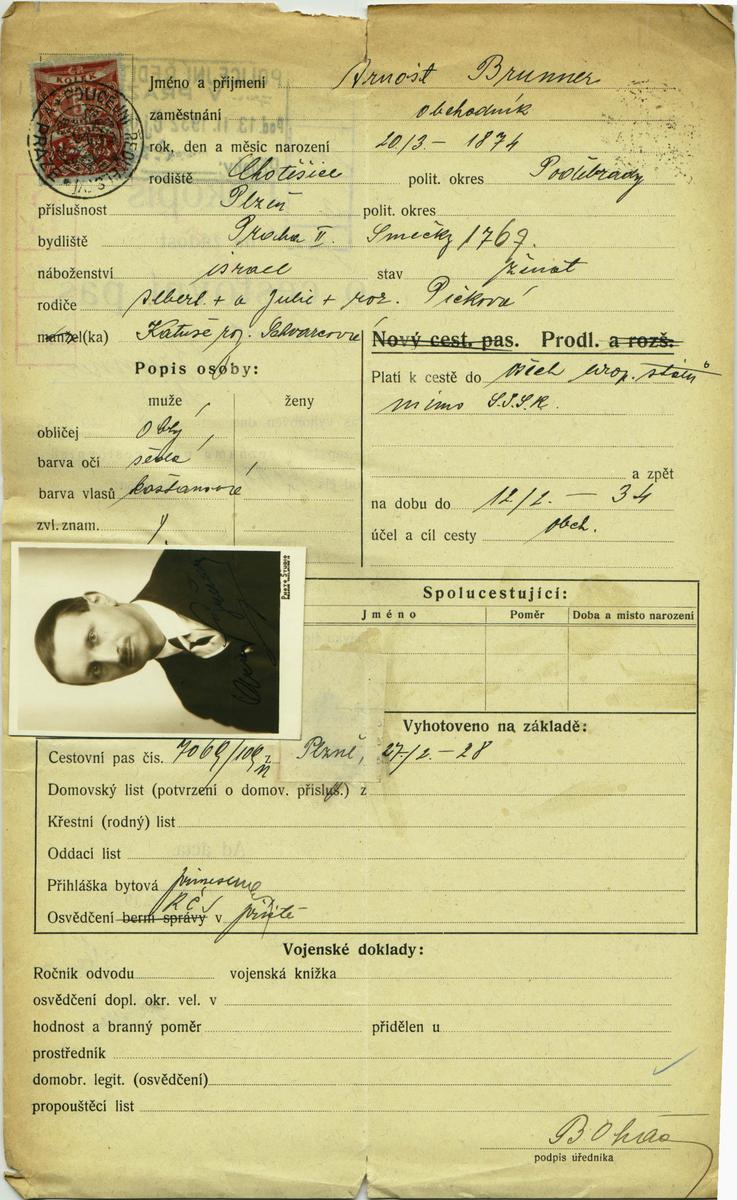 KOLEK
POLICEJNÍ ŘEDITELSTVÍ
PRA
Jméno a příjmení Arnošt Brunner
zaměstnání obchodník
rok, den a měsíc narození 20/3. – 1874
rodiště Chotěšice polit. okres Poděbrady
příslušnost Plzeň polit. okres
bydliště Praha II. Smečky 1767.
náboženství israel stav ženat
rodiče Albert + a Julie + roz. Pičková
manžel(ka) Katuše roz.
Nový cest. pas. Prodl. a rozš.
Popis osoby:
Platí k cestě do všech evrop. států
muže ženy
mimo S.S.S.R.
obličej
barva očí šedá
a zpět
barva vlasů kaštanové
na dobu do 12/2. – 34
zvl. znam.
účel a cíl cesty obch.
Spolucestující:
Jméno Poměr Doba a místo narození
Vyhotoveno na základě:
Cestovní pas čís. 7069/109 z Plzně, 27/2. – 28
Domovský list (potvrzení o domov. přísluš.) z
Křestní (rodný) list
Oddací list
Přihláška bytová
Osvědčení berní správy v
Vojenské doklady:
Ročník odvodu vojenská knížka
osvědčení dopl. okr. vel. v
hodnost a branný poměr přidělen u
prostředník
domobr. legit. (osvědčení)
propouštěcí list
podpis úředníka